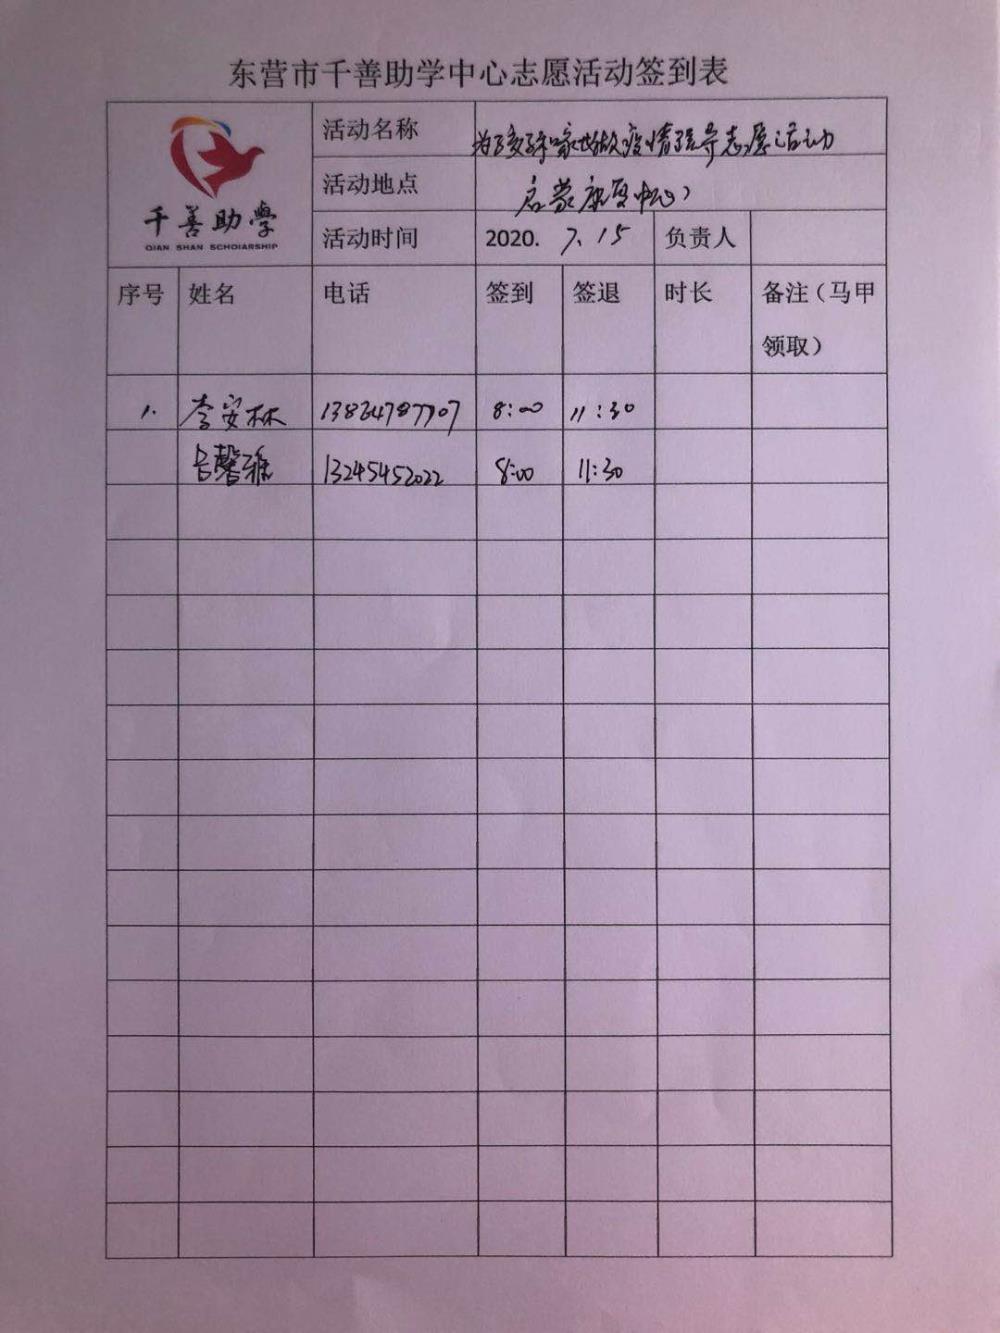 东营市千善助学中心志愿活动签到表
千善助學
QIAN SHAN SCHOlARSHIP
活动名称 为孩子和家长做疫情疏导志愿活动
活动地点 启蒙康复中心
活动时间 2020. 7.15 负责人
序号 姓名 电话 签到 签退 时长 备注（马甲
领取）
1. 李安林 13864787707 8:00 11:30
吕馨雅 13245452022 8:00 11:30